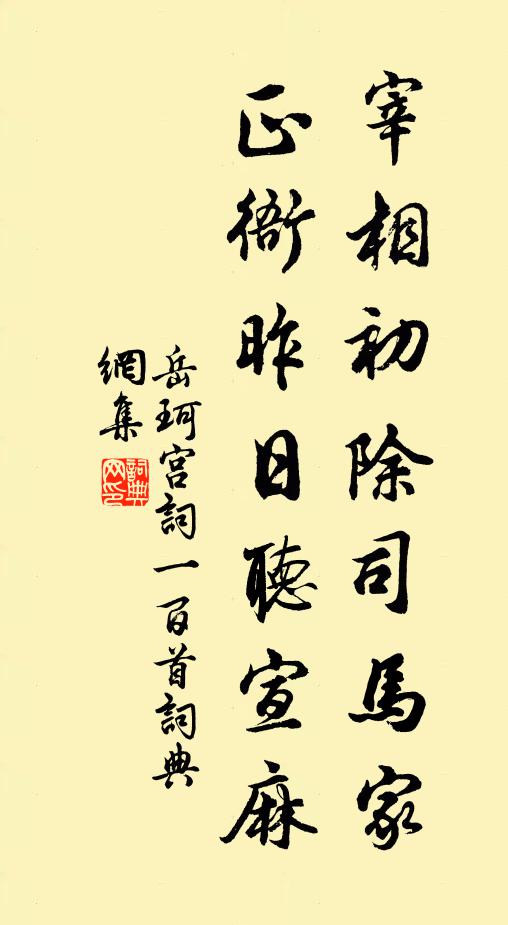 宰相初除司馬家
正衙昨日聽宣麻
岳珂宮詞一百首詞典
網集
詞典
网印